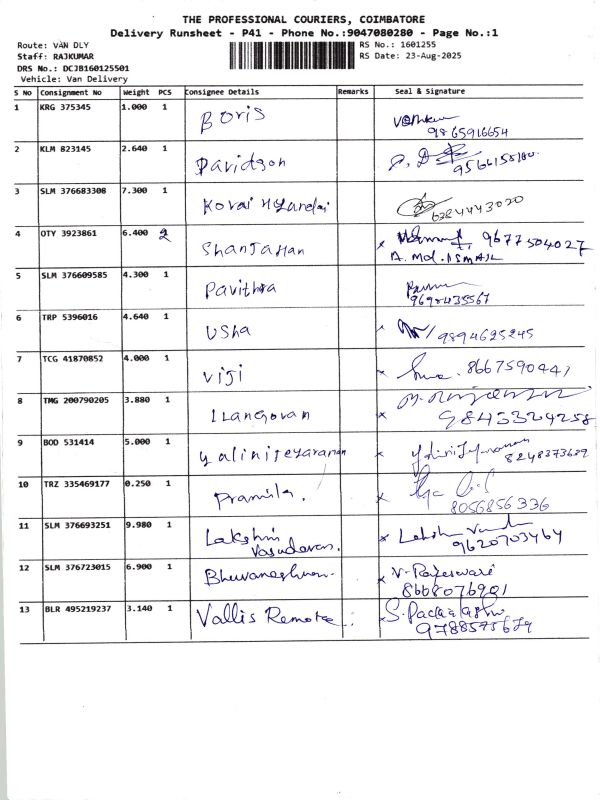 THE PROFESSIONAL COURIERS, COIMBATORE
Delivery Runsheet - P41 - Phone No.:9047080280 - Page No.:1
Route: VAN DLY
Staff: RAJKUMAR
DRS No.: DCJB160125501
Vehicle: Van Delivery
RS No.: 1601255
RS Date: 23-Aug-2025
S No Consignment No Weight PCS Consignee Details Remarks Seal & Signature
1 KRG 375345 1.000 1 Boris
9865916654
2 KLM 823145 2.640 1 Davidson
9566158180
3 SLM 376683308 7.300 1 Kovai
6384443020
4 OTY 3923861 6.400 2 Shanjahan 9677504027
A. Md. ISMAIL
5 SLM 376609585 4.300 1 Pavithra
9698435567
6 TRP 5396016 4.640 1 Usha 9894625245
7 TCG 41870852 4.000 1 Viji 8667590441
8 TMG 200790205 3.880 1 Ilangovan
9843324258
9 BOD 531414 5.000 1 yalinijeyaraman
8248373689
10 TRZ 335469177 0.250 1 Pramila.
8056856336
11 SLM 376693251 9.980 1 Lakshmi
Vasudevan.
9620703464
12 SLM 376723015 6.900 1 Bhuvaneshwari. V. Rajeswari
8668076901
13 BLR 495219237 3.140 1 Vallis Remote.
9788575679